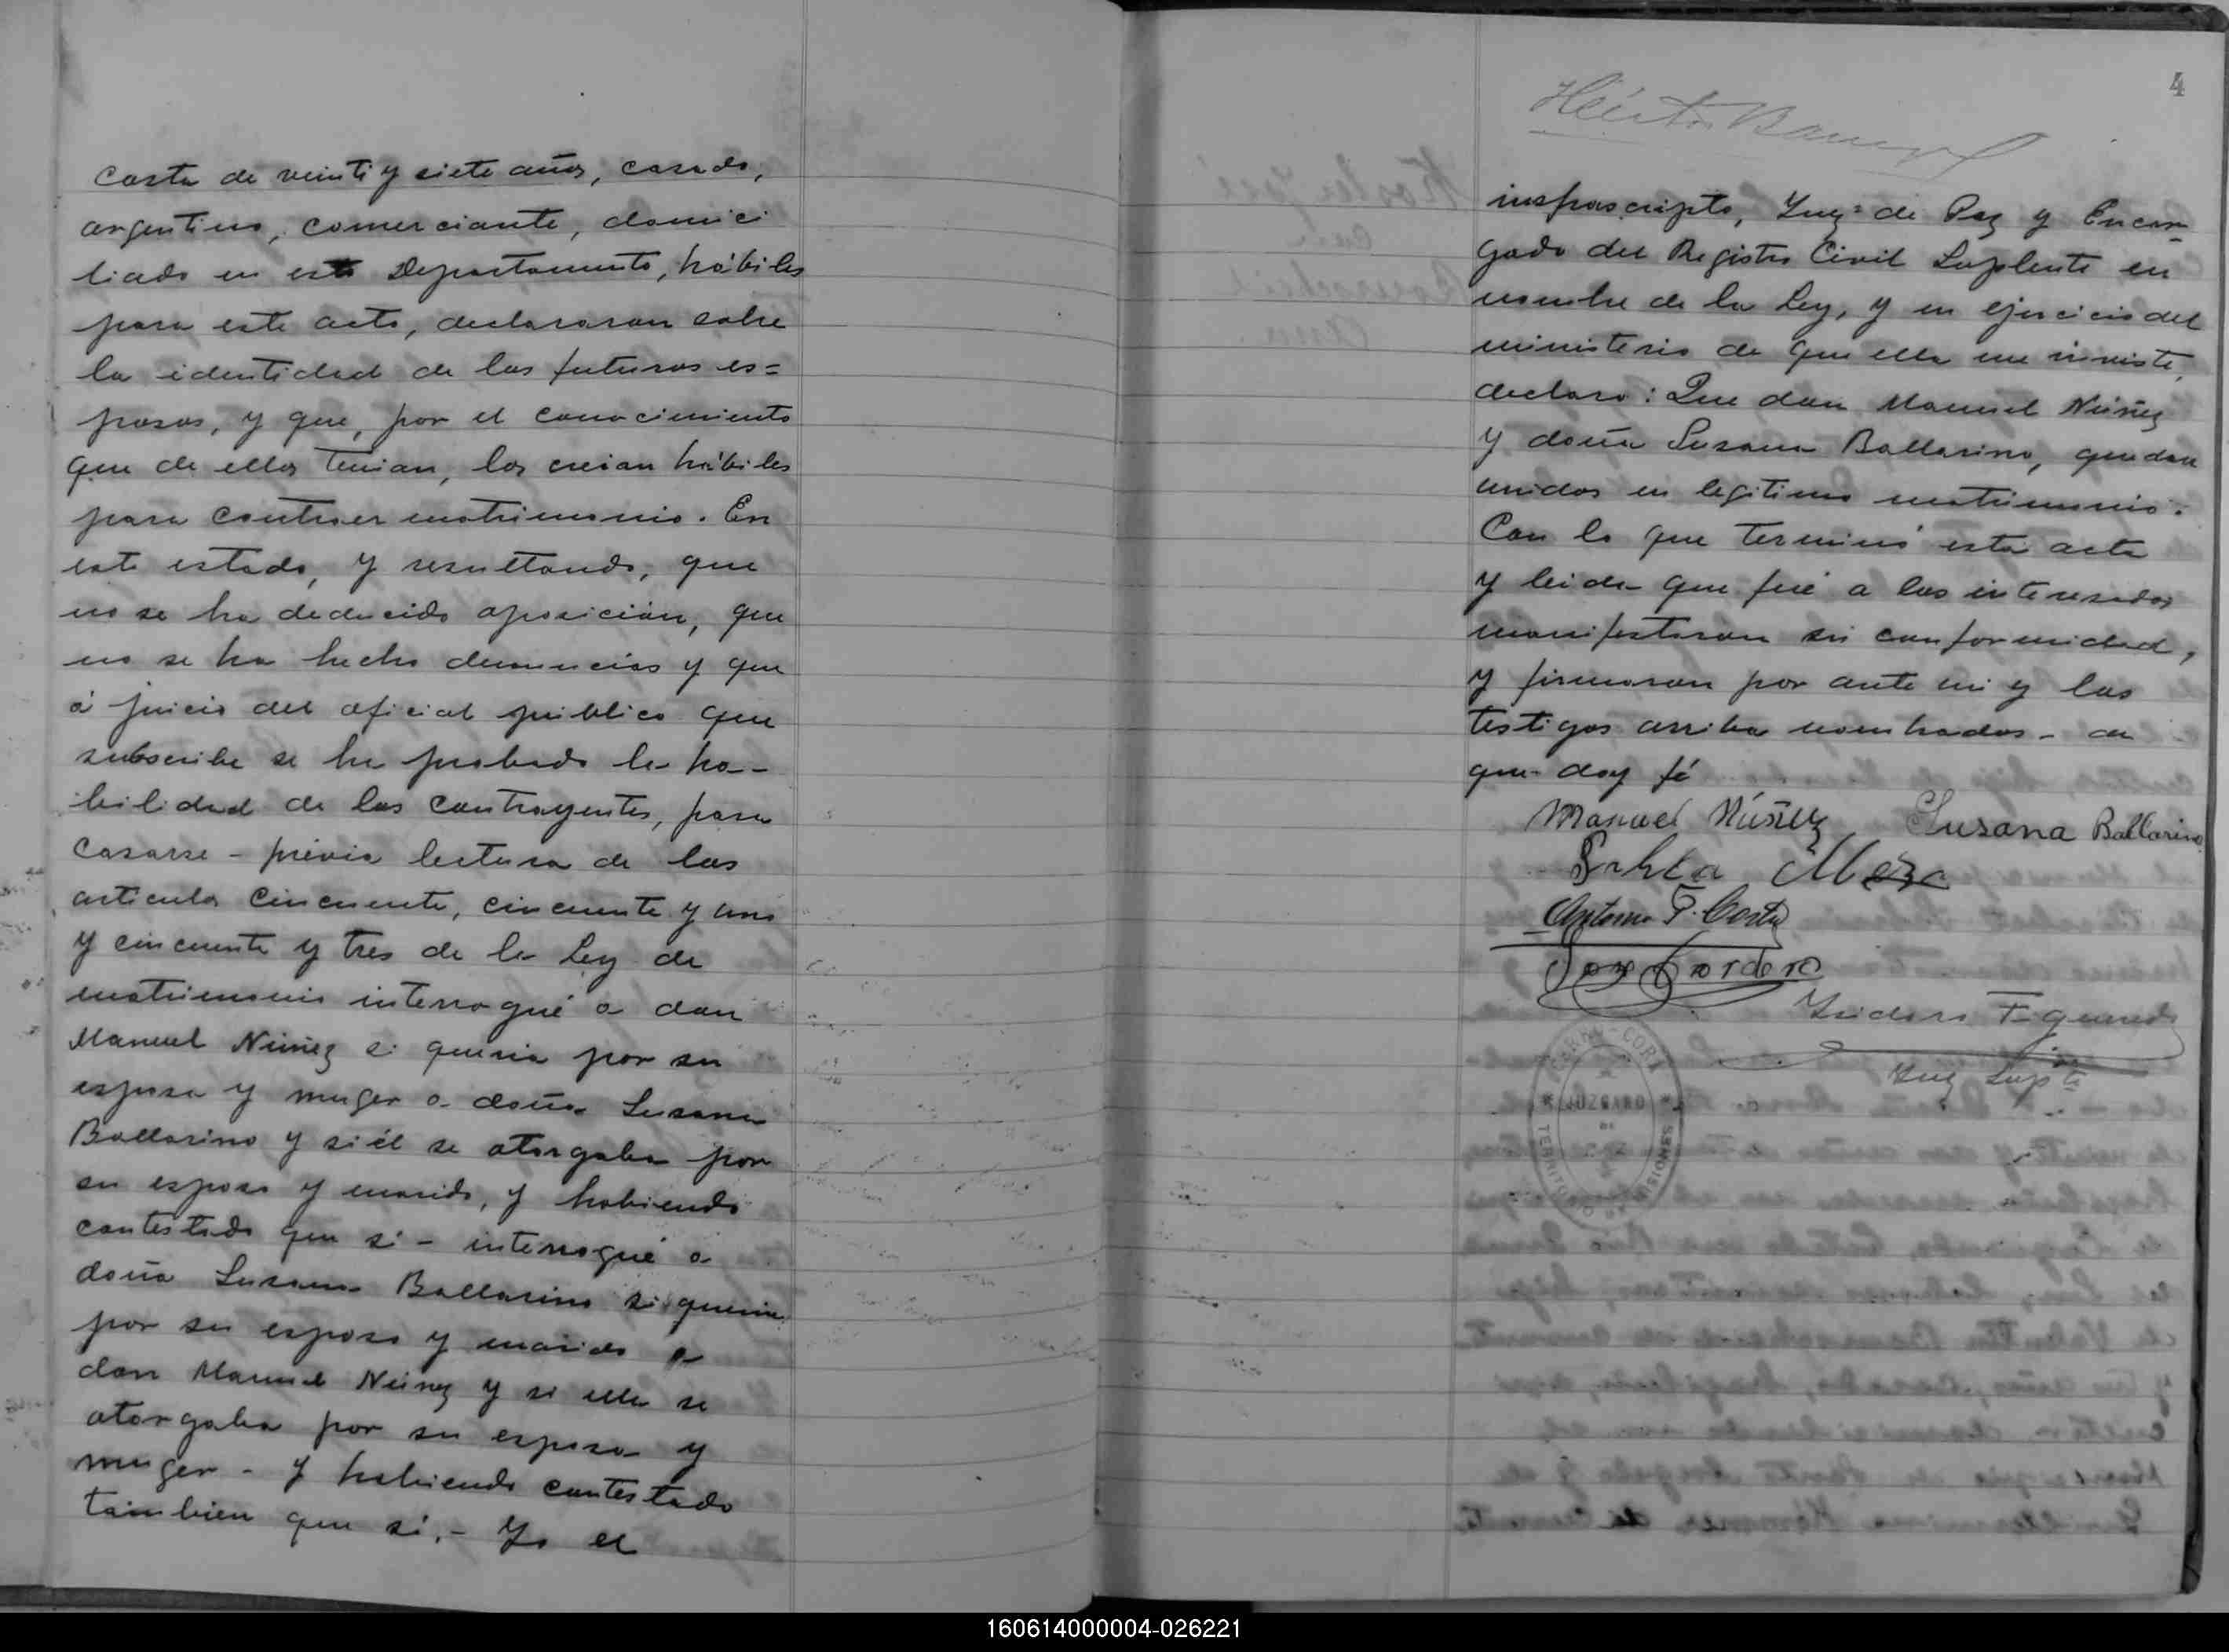 Costa de veinti y siete años, casado,
argentino, comerciante, domici
liado en este Departamento, hábiles
para este acto, declararon sobre
la identidad de los futuros es=
posos, y que, por el conocimiento
que de ellos tenian, los creian hábiles
para contraer matrimonio. En
este estado, y resultando, que
no se ha deducido oposición, que
no se ha hecho denuncias y que
á juicio del oficial público que
subscribe se ha probado la ha-
bilidad de los contrayentes, para
casarse - previa lectura de los
articulos cincuenta, cincuenta y uno
y cincuenta y tres de la Ley de
matrimonio interrogué a don
Manuel Núñez si queria por su
esposa y muger a doña Susana
Ballarino y si él se otorgaba por
su esposo y marido, y habiendo
contestado que si - interrogué a
doña Susana Ballarino si queria
por su esposo y marido a
don Manuel Núñez y si ella se
otorgaba por su esposa y
muger - y habiendo contestado
tambien que si. - Yo el
4
Héctor
infrascripto, Juez de Paz y Encar
gado del Registro Civil Suplente en
nombre de la Ley, y en ejercicio del
ministerio de que ella me inviste,
declaro: Que don Manuel Núñez
y doña Susana Ballarino, quedan
unidos en legitimo matrimonio.
Con lo que terminó esta acta
y leida que fué a los interesados
manifestaron su conformidad,
y firmaron por ante mi y los
testigos arriba nombrados - de
que doy fé
Manuel Núñez Susana Ballarino
Antonio F. Costa
Cordero
Isidoro Figueredo
Juez Supte
CERRO-CORA
JUZGADO
DE
TERRITORIO DE MISIONES
160614000004-026221